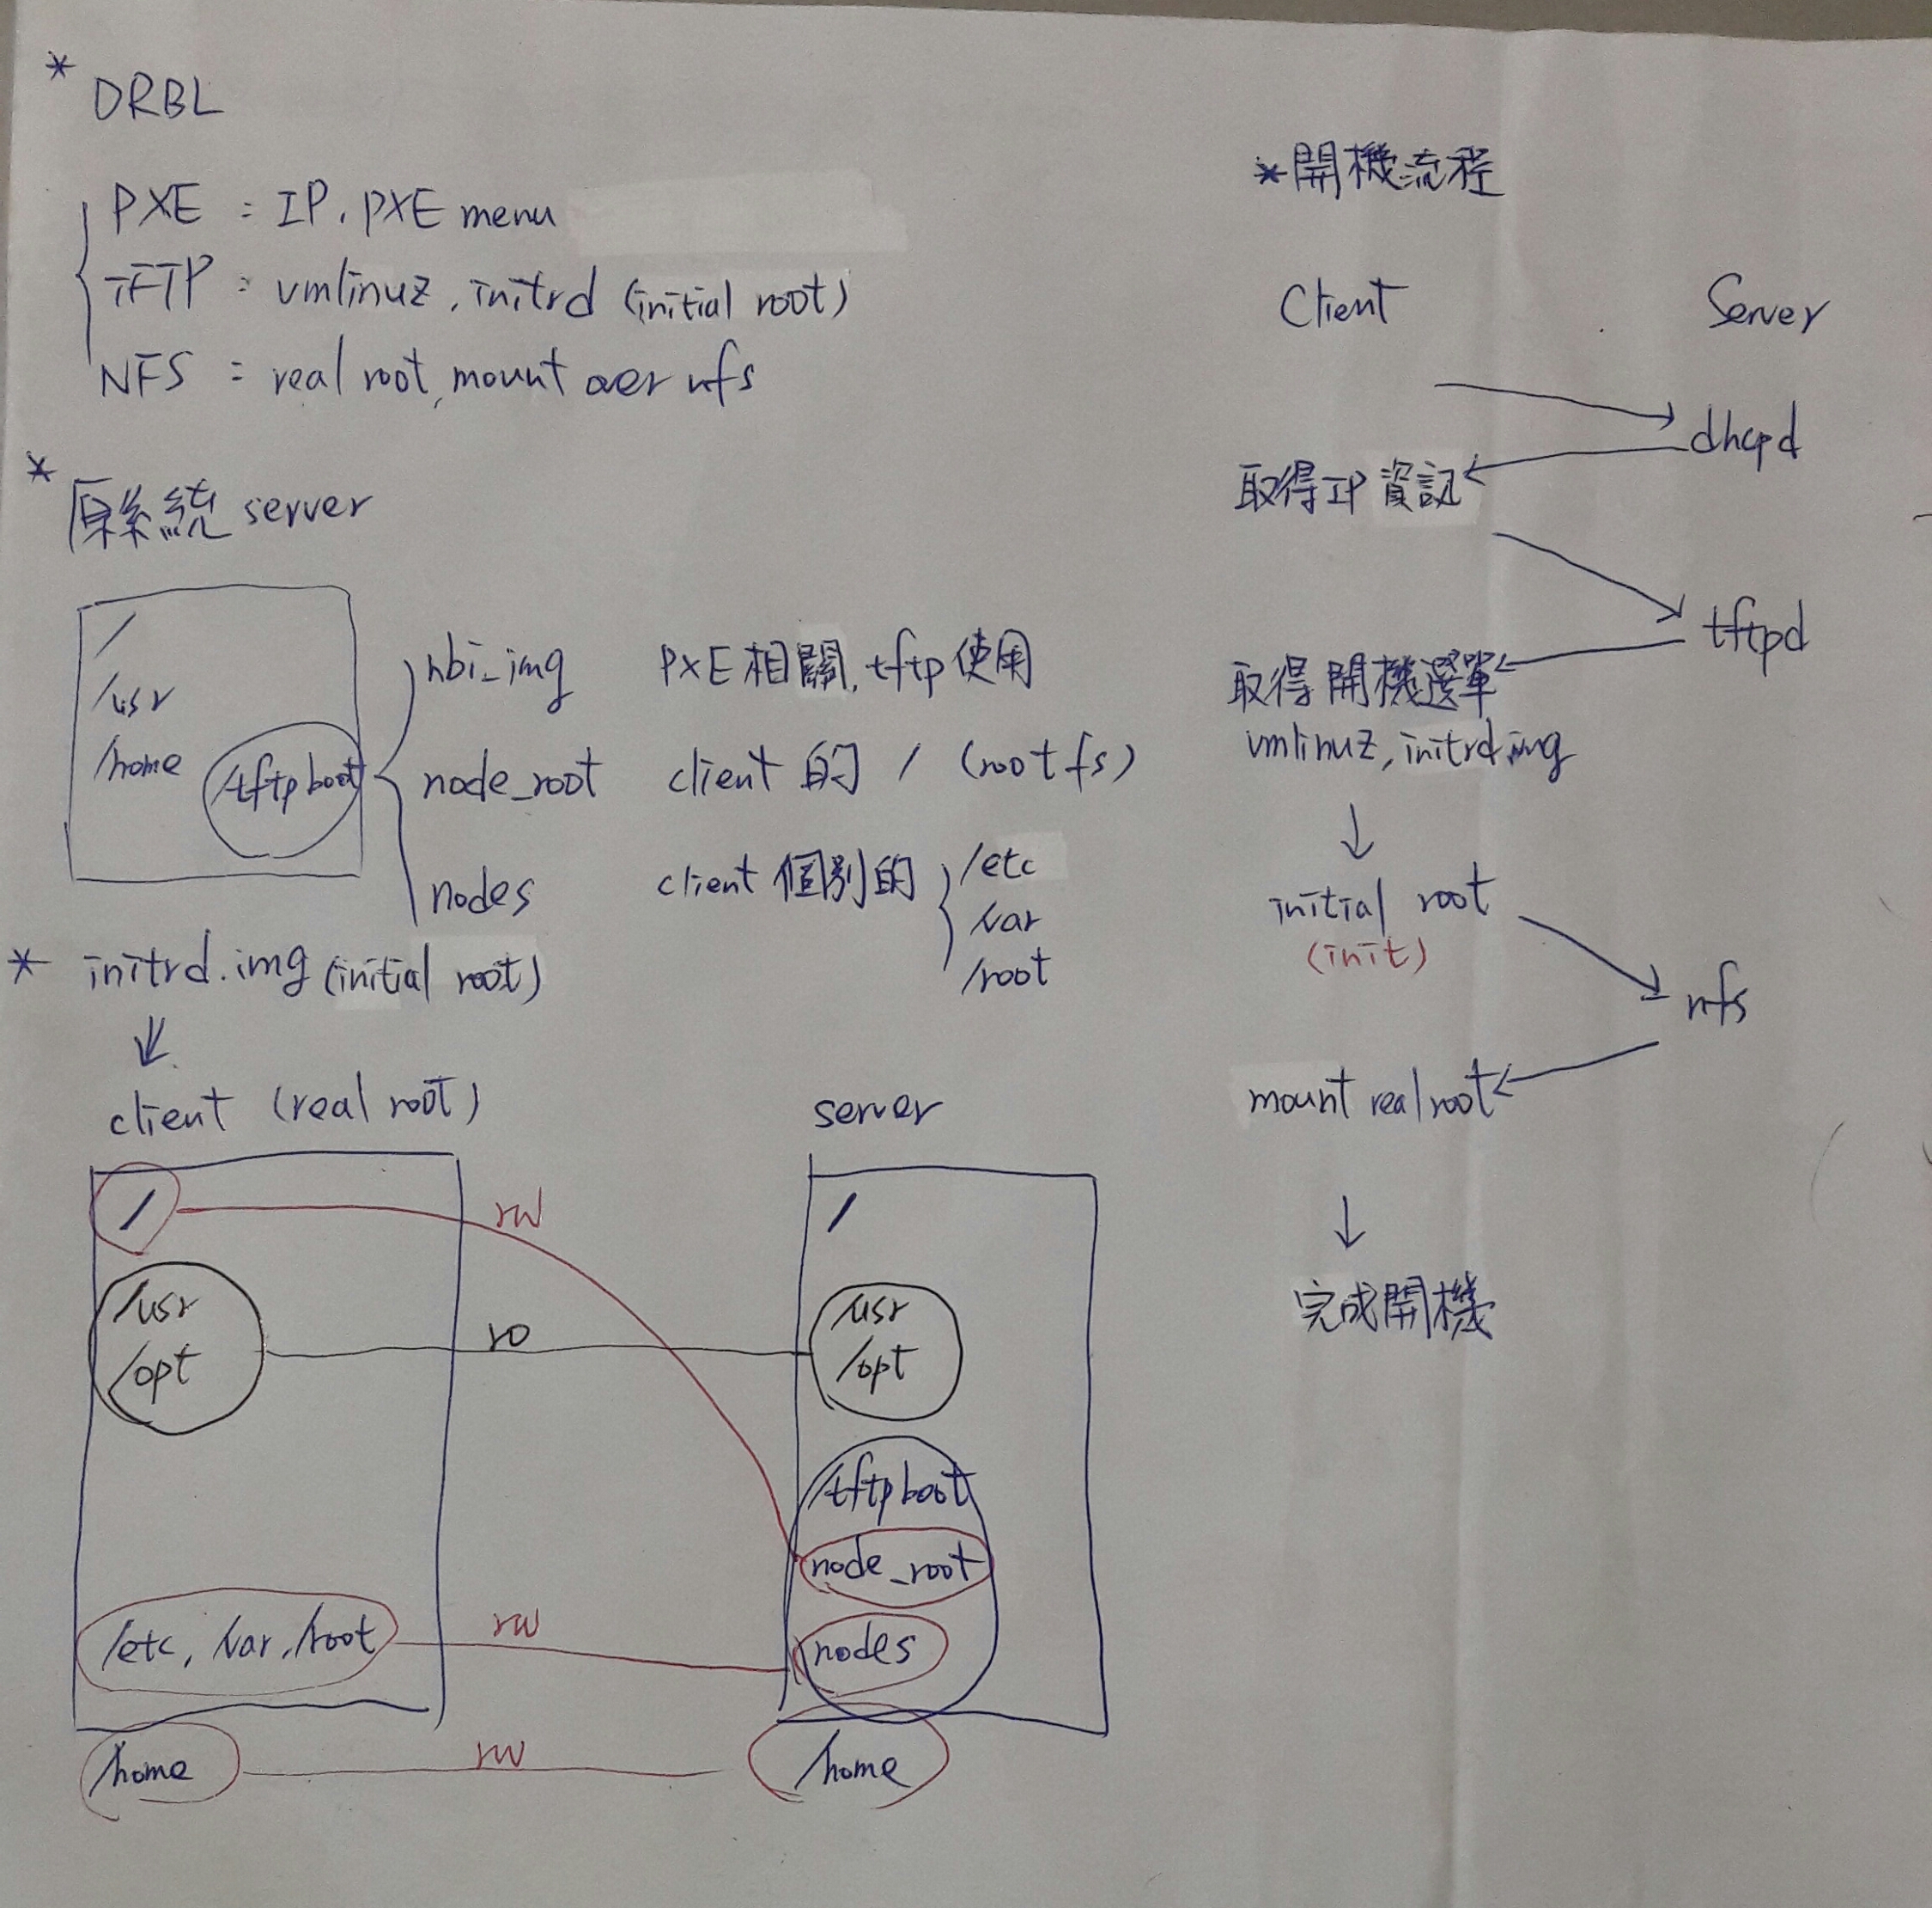 * DRBL
PXE : IP, PXE menu
TFTP : vmlinuz, initrd (initial root)
NFS : real root, mount over nfs
* 原系統 server
/
/usr
/home
/tftpboot
nbi_img PXE相關, tftp使用
node_root client 的 / (rootfs)
nodes client 個別的 /etc
/var
/root
* initrd.img (initial root)
client (real root)
server
/
/usr
/opt
/etc, /var, /root
/home
rw
ro
rw
rw
/
/usr
/opt
/tftpboot
node_root
nodes
/home
*開機流程
Client Server
dhcpd
取得IP資訊
tftpd
取得開機選單
vmlinuz, initrd.img
initial root
(init)
nfs
mount real root
完成開機